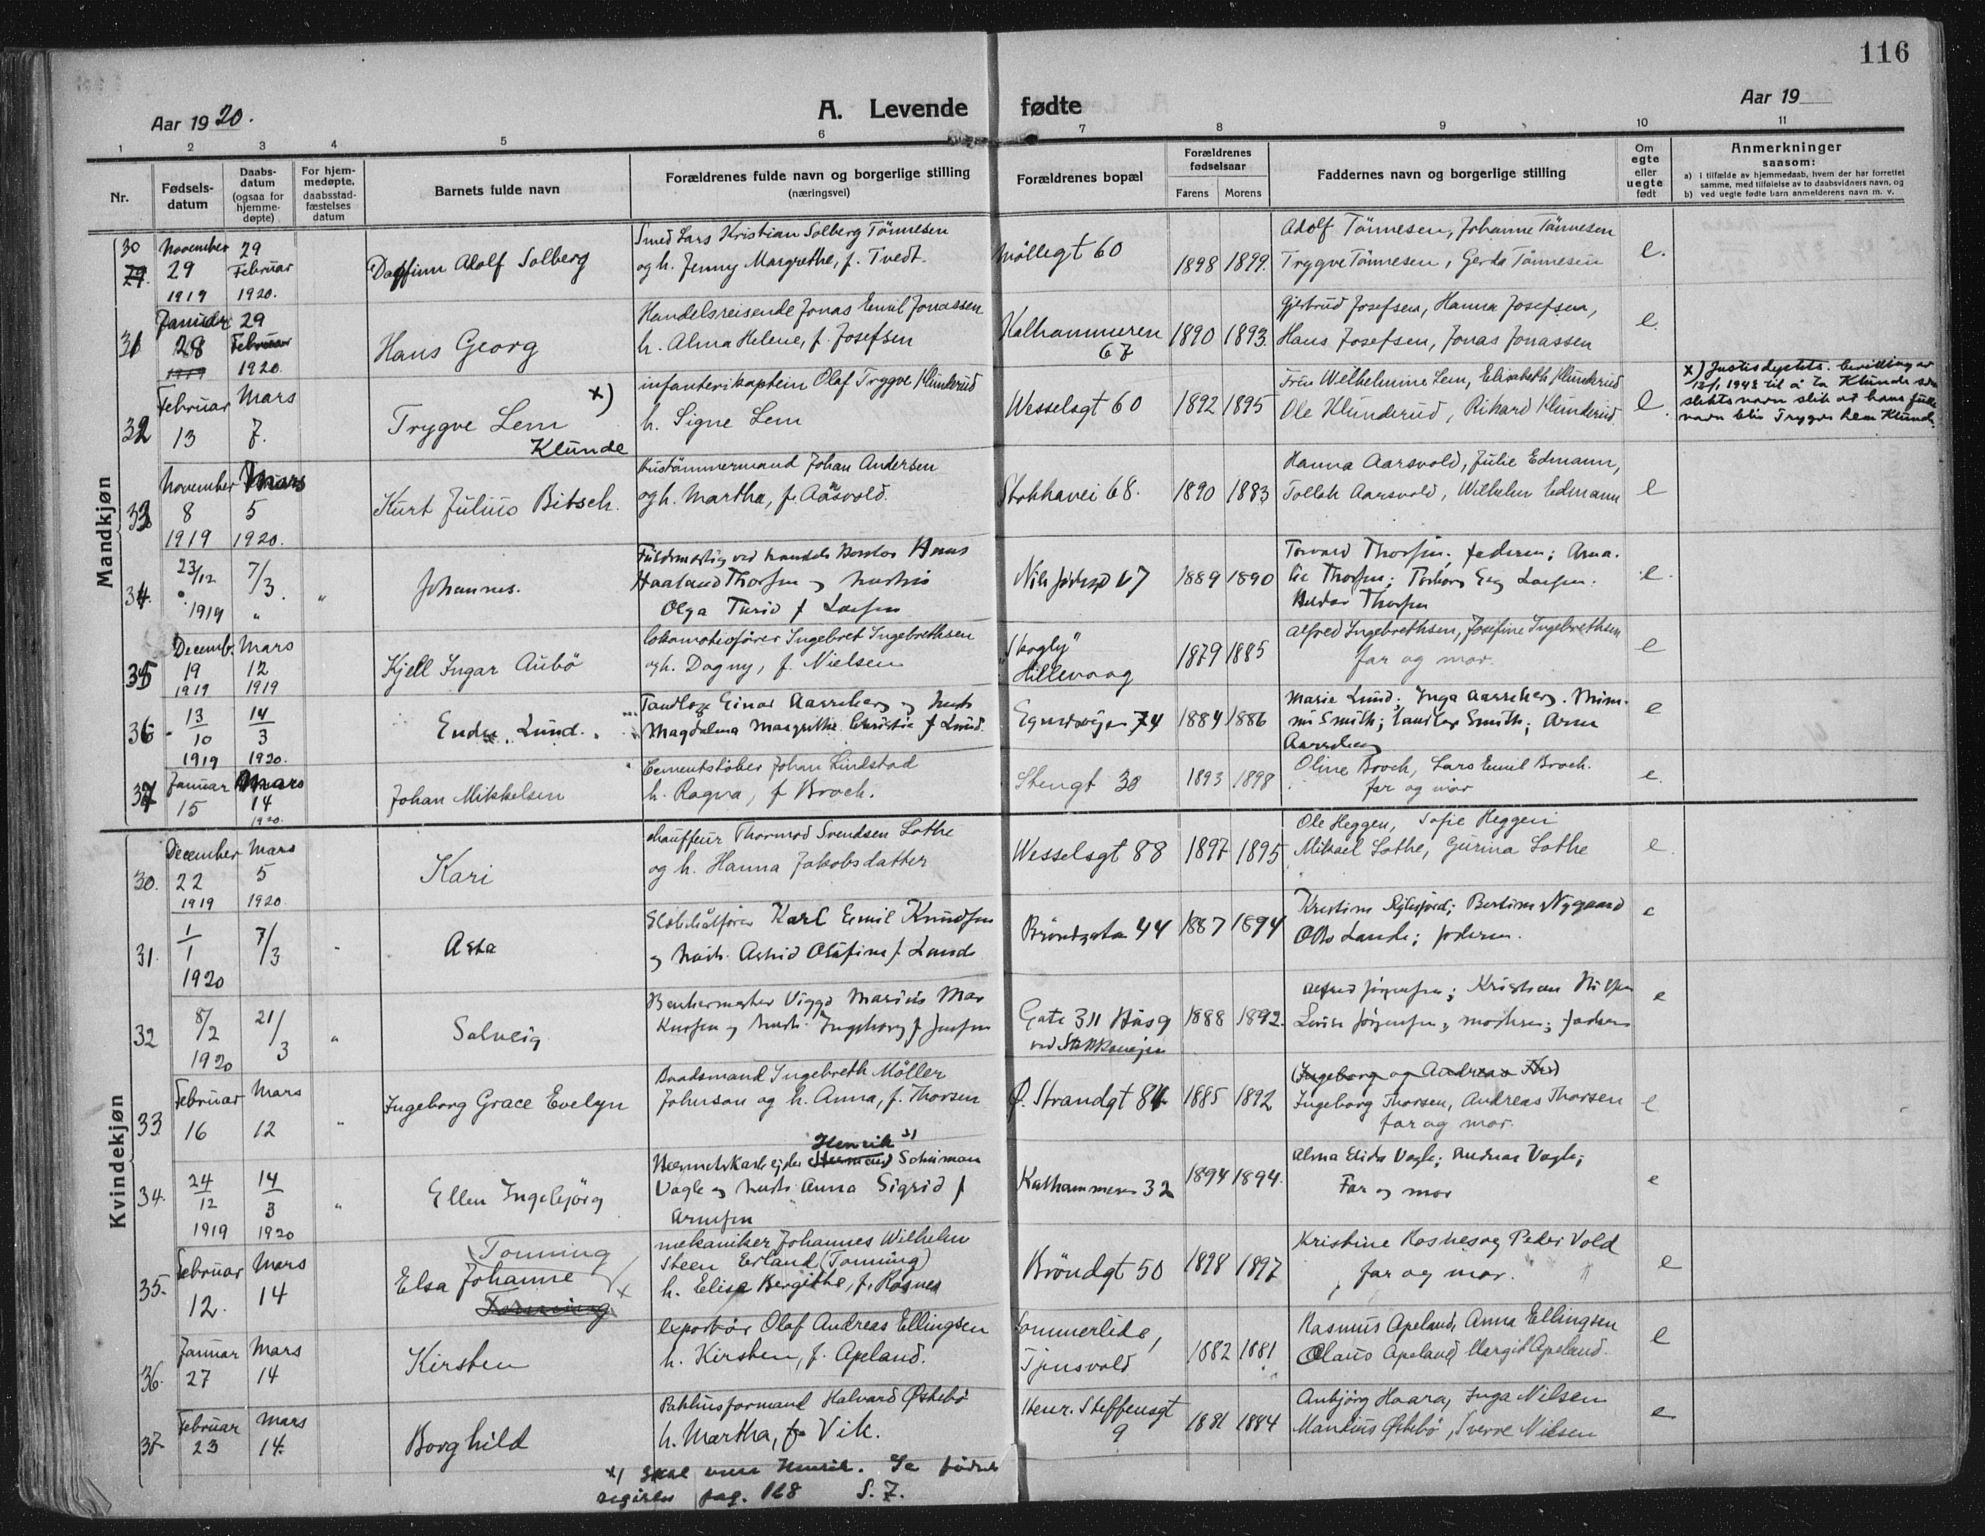 116
Aar 1920.
A. Levende fødte
Aar 19
1 2 3 4 5 6 7 8 9 10 11
Nr.
Fødsels-
datum
Daabs-
datum
(ogsaa for
hjemme-
døpte)
For hjem-
medøpte,
daabsstad-
fæstelses
datum
Barnets fulde navn
Forældrenes fulde navn og borgerlige stilling
(næringsvei)
Forældrenes bopæl
Forældrenes
fødselsaar
Farens Morens
Faddernes navn og borgerlige stilling
Om
egte
eller
uegte
født
Anmerkninger
saasom:
a) i tilfælde av hjemmedaab, hvem der har forrettet
samme, med tilføielse av to daabsvidners navn, og
b) ved uegte fødte barn anmelderens navn m. v.
Mandkjøn
30
29.
November
29
1919
29
Februar
1920.
Dagfinn Adolf Solberg
Smed Lars Kristian Solberg Tönnesen
og h. Jenny Margrethe, f. Tvedt.
Möllegt 60
1898 1899.
Adolf Tönnesen, Johanne Tönnesen
Trygve Tönnesen, Gerda Tönnesen
e.
31
Januar
28
1919
29
Februar
1920.
Hans Georg
Handelsreisende Jonas Emil Jonassen
h. Alma Helene, f. Josefsen
Kalhammeren
67
1890 1893.
Gjertrud Josefsen, Hanna Josefsen,
Hans Josefsen, Jonas Jonassen
e.
32
Februar
13
Mars
7.
Trygve Lem x)
Klunde
infanterikaptein Olaf Trygve Klunderud
h. Signe Lem
Wesselsgt 60
1892 1895
Frue Wilhelmine Lem, Elisabeth Klunderud
Ole Klunderud, Rikard Klunderud
e.
x) Justisdeptets. bevilling av
12/1 1942 til å ta Klunde som
slektsnavn slik at hans fulle
navn blir Trygve Lem Klunde.
33
November
8
1919
Mars
5
1920.
Kurt Julius Bitsch.
Hustömmermand Johan Andersen
og h. Martha, f. Aarsvold.
Stokkavei 68.
1890 1883
Hanna Aarsvold, Julie Edmann,
Tollak Aarsvold, Wilhelm Edmann
e
34.
23/12
1919
7/3.
"
Johannes.
Haaland Thorsen og hustru
Olga Turid f.
1889 1890
e.
35
Decemb.
19
1919
Mars
12
1919
Kjell Ingar Aubö
lokomotivförer Ingebret Ingebrethsen
og h. Dagny, f. Nielsen
"Skogly"
Hillevaag
1879 1885
Alfred Ingebrethsen, Josefine Ingebrethsen
far og mor.
e
36
13
10
1919
14
3
1920.
Endre Lund.
Tandlæge Einar
Magdalena Margrethe Christie f Lund.
74
1884 1886
Marie Lund; Inga
Smith; Tandlæge Smith; Arne
e
37
Januar
15
Mars
14
1920.
Johan Mikkelsen
Cementstöber Johan Lindstad
h. Ragna, f Broch.
Stengt 30
1893 1898
Oline Broch, Lars Emil Broch.
far og mor
e.
Kvindekjøn
30.
December
22
1919
Mars
5
1920.
Kari
chauffeur Thormod Svendsen Lothe
og h. Hanna Jakobsdatter
Wesselsgt 88
1897 1895
Ole Heggen, Sofie Heggen
Mikael Lothe, Gurina Lothe
e.
31.
1
1
1920
7/3
Asta
Karl Emil Knudsen
og hustr. Astrid Olafine f. Lande
Bröndgata 44
1887 1894
Kristine Bertine Nygaard
Otto Lande; faderen.
e
32
8/2
1920
21/3
"
Solveig
Viggo Marius
og hustr. Ingeborg f.
Gate 311 Hus 9
ved Stokkaveien
1888 1892.
Alfred Jörgensen; Kristian Nilsen
Jörgensen; moderen; faderen
e
33.
Februar
16
Mars
12
"
Ingeborg Grace Evelyn
Baadsmand Ingebreth Möller
Johnson og h. Anna, f. Thorsen
Ø. Strandgt 84
1885 1892
(Ingeborg og Andreas Thor)
Ingeborg Thorsen, Andreas Thorsen
far og mor.
e
34.
24
12
1919
14
3
1920
"
Ellen Ingebjörg
Henrik x)
Herman Schuman
Vagle og hustr. Anna Sigrid f
Arnesen
Kalhammeren 32
1894 1894.
Alma Elida Vagle; Andreas Vagle;
Far og mor
e
35.
Februar
12.
Mars
14
Tonning
Elsa Johanne x
Tonning
mekaniker Johannes Wilhelm
Steen Erland (Tonning)
h. Elise Bergithe, f. Rosnes
Bröndgt 50
1898 1897
Kristine Rosnes og Peder Vold
far og mor.
e
36.
Januar
27
Mars
14
Kirsten
exportör Olaf Andreas Ellingsen
h. Kirsten, f. Apeland.
Sommerlide,
Tjensvold
1882 1881
Rasmus Apeland, Anna Ellingsen
Olaus Apeland, Margit Apeland.
e
37.
Februar
23
Mars
14.
Borghild
Pakhusformand Halvard Østebö
h. Martha, f. Vik.
Henr. Steffensgt
9
1881 1884
Anbjörg Haara, Inga Nilsen
Mandius Østebö, Sverre Nilsen
e
x) skal være Henrik. Se födsels
registr. pag. 128 S. 7.